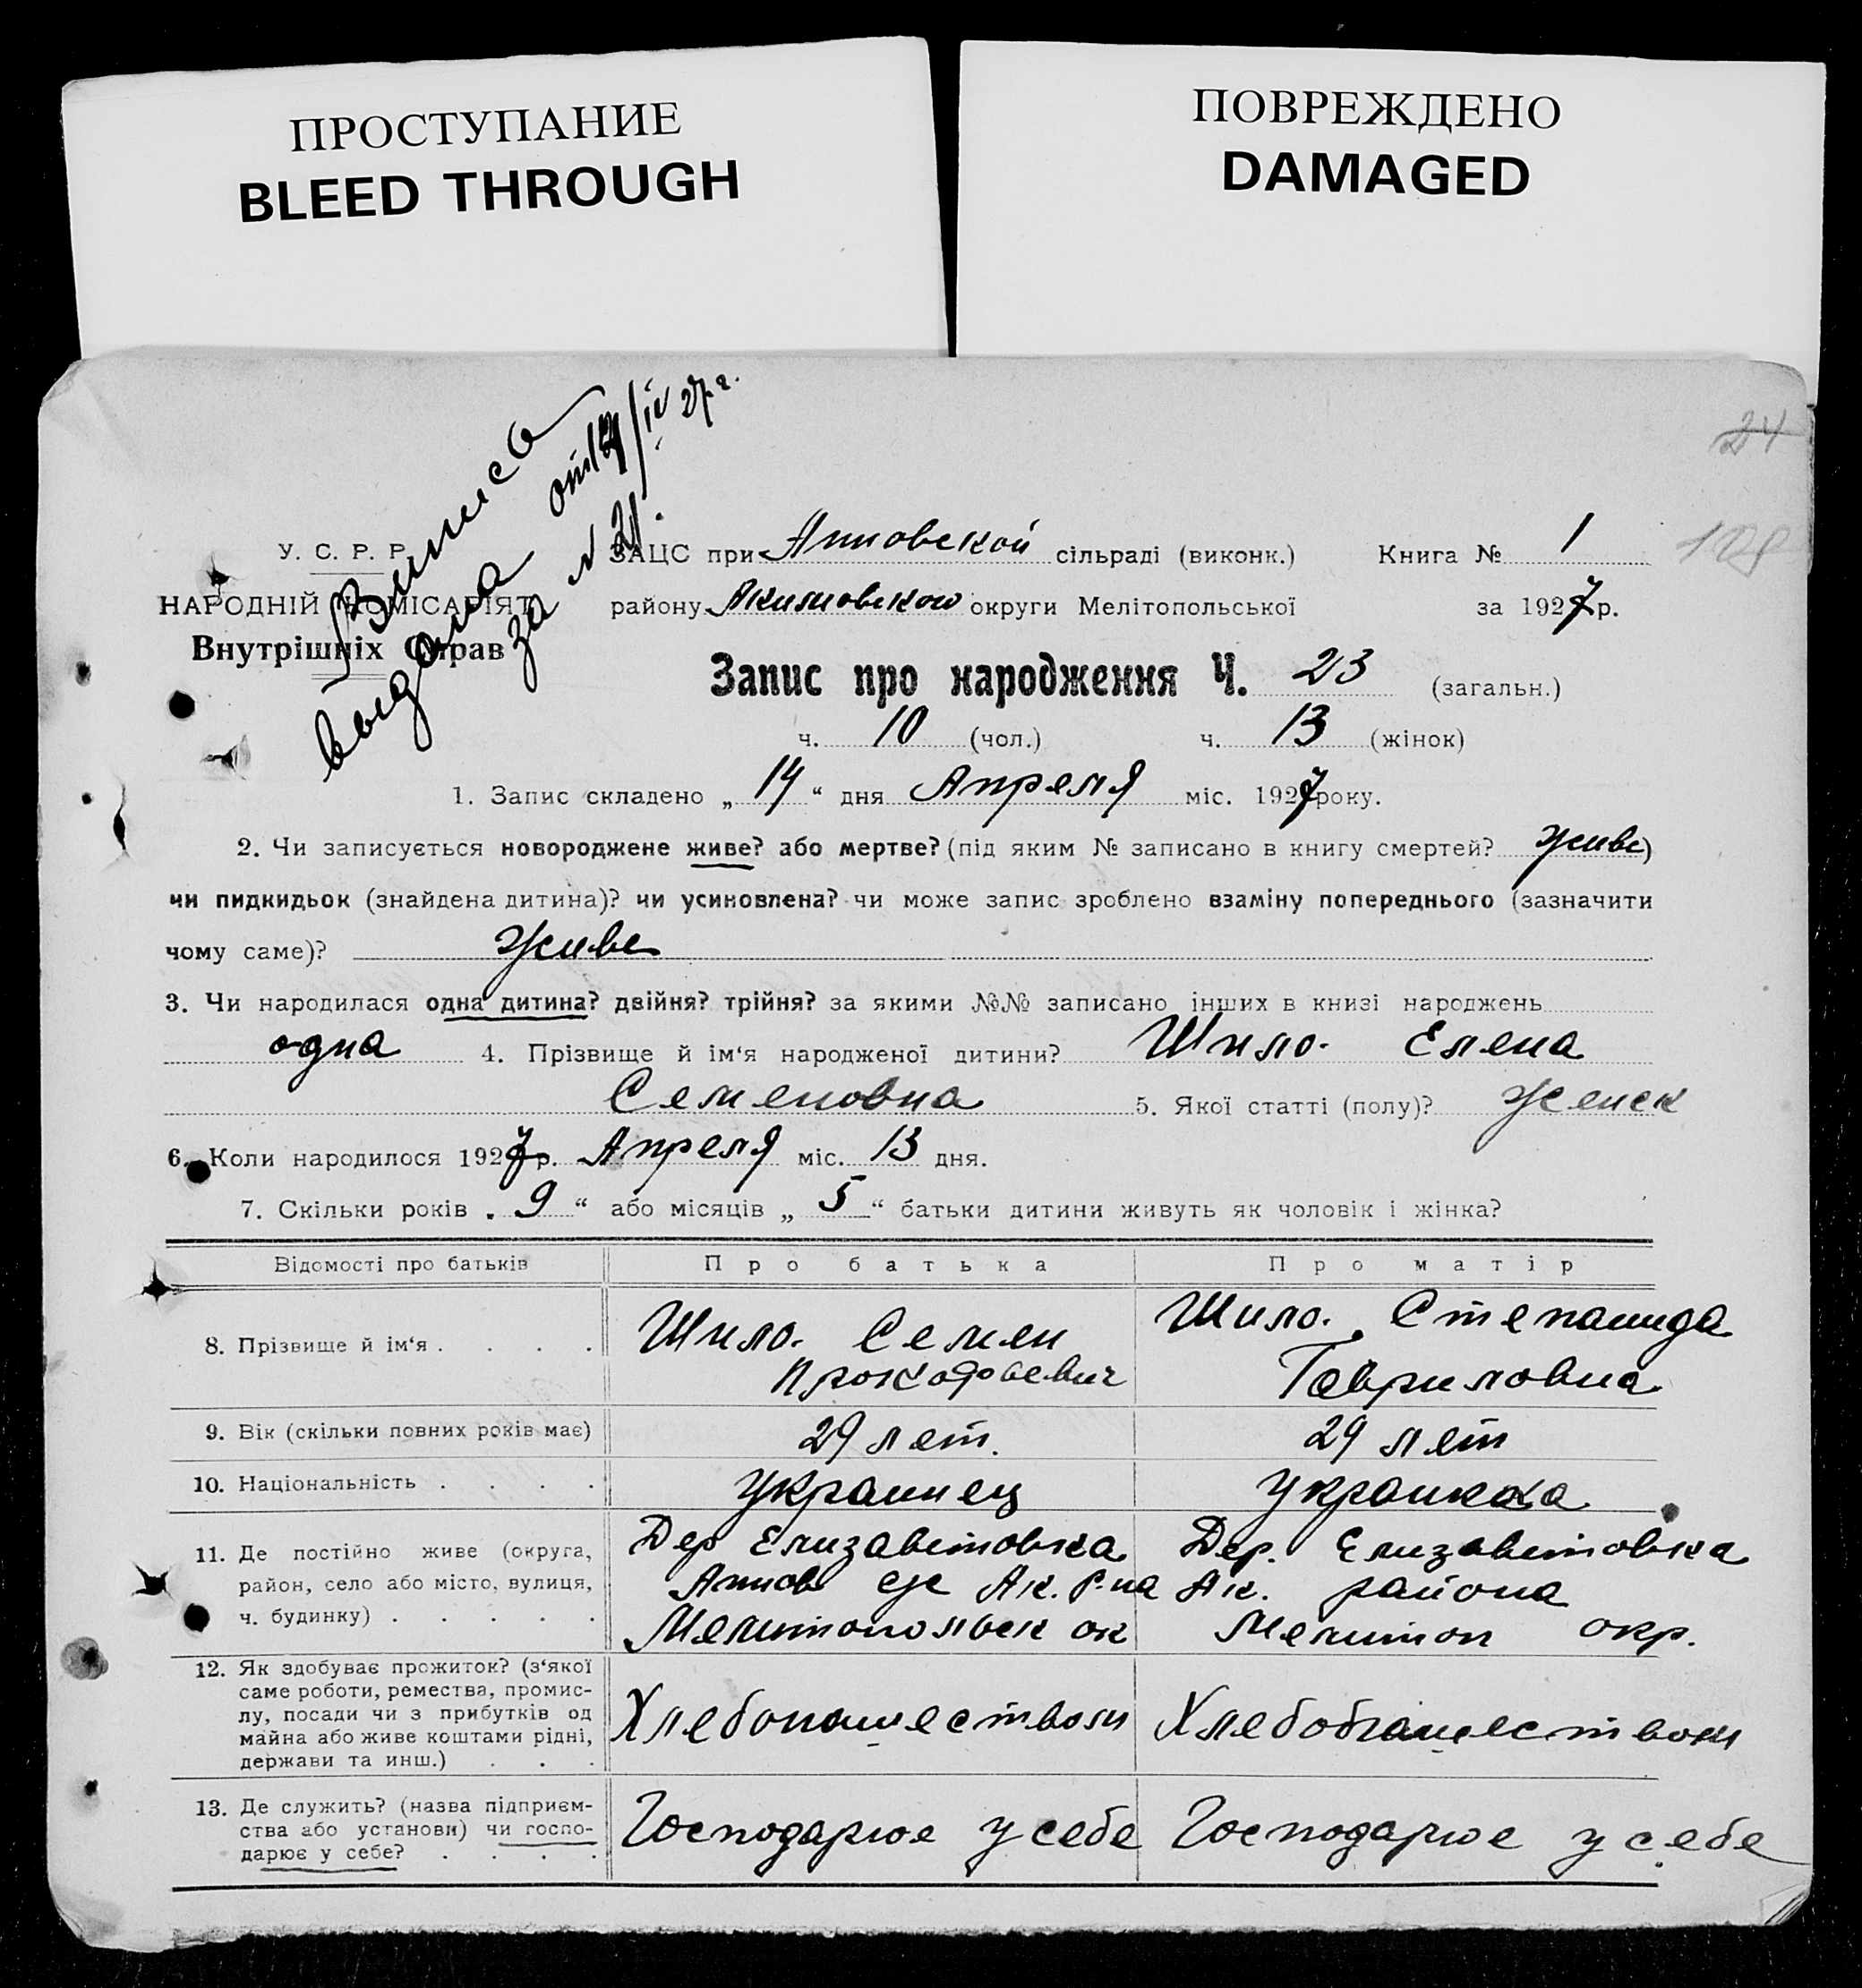 ПРОСТУПАНИЕ
BLEED THROUGH
ПОВРЕЖДЕНО
DAMAGED
24
128
Выпись
выдана от 14/IV 27 г.
за № 21.
У. С. Р. Р.
НАРОДНІЙ КОМІСАРІЯТ
Внутрішніх Справ
ЗАЦС при Анновской сільраді (виконк.) Книга № 1
району Акимовского округи Мелітопольської за 1927 р.
Запис про народження Ч. 23 (загальн.)
ч. 10 (чол.) ч. 13 (жінок)
1. Запис складено „ 14 “ дня Апреля міс. 1927 року.
2. Чи записується новороджене живе? або мертве? (під яким № записано в книгу смертей? живе)
чи пидкидьок (знайдена дитина)? чи усиновлена? чи може запис зроблено взаміну попереднього (зазначити
чому саме)? живе
3. Чи народилася одна дитина? двійня? трійня? за якими №№ записано інших в книзі народжень
одна 4. Прізвище й ім‘я народженої дитини? Шило. Елена
Семеновна 5. Якої статті (полу)? женск
6. Коли народилося 1927 р. Апреля міс. 13 дня.
7. Скільки років „ 9 “ або місяців „ 5 “ батьки дитини живуть як чоловік і жінка?
Відомості про батьків Про батька Про матір
8. Прізвище й ім‘я . . . . Шило. Семен Шило. Степанида
Прокофьевич Гавриловна
9. Вік (скільки повних років має) 29 лет. 29 лет
10. Національність . . . . Украинец Украинка
11. Де постійно живе (округа, Дер Елизаветовка Дер. Елизаветовка
район, село або місто, вулиця, Аннов с/с Ак. р-на Ак. района
ч. будинку) . . . . . Мелитопольск ок Мелитоп окр.
12. Як здобуває прожиток? (з‘якої
саме роботи, ремества, промис-
лу, посади чи з прибутків од Хлебопашеством Хлебопашеством
майна або живе коштами рідні,
держави та инш.) . . .
13. Де служить? (назва підприєм-
ства або установи) чи госпо- Господарює у себе Господарює у себе
дарює у себе? . . . .